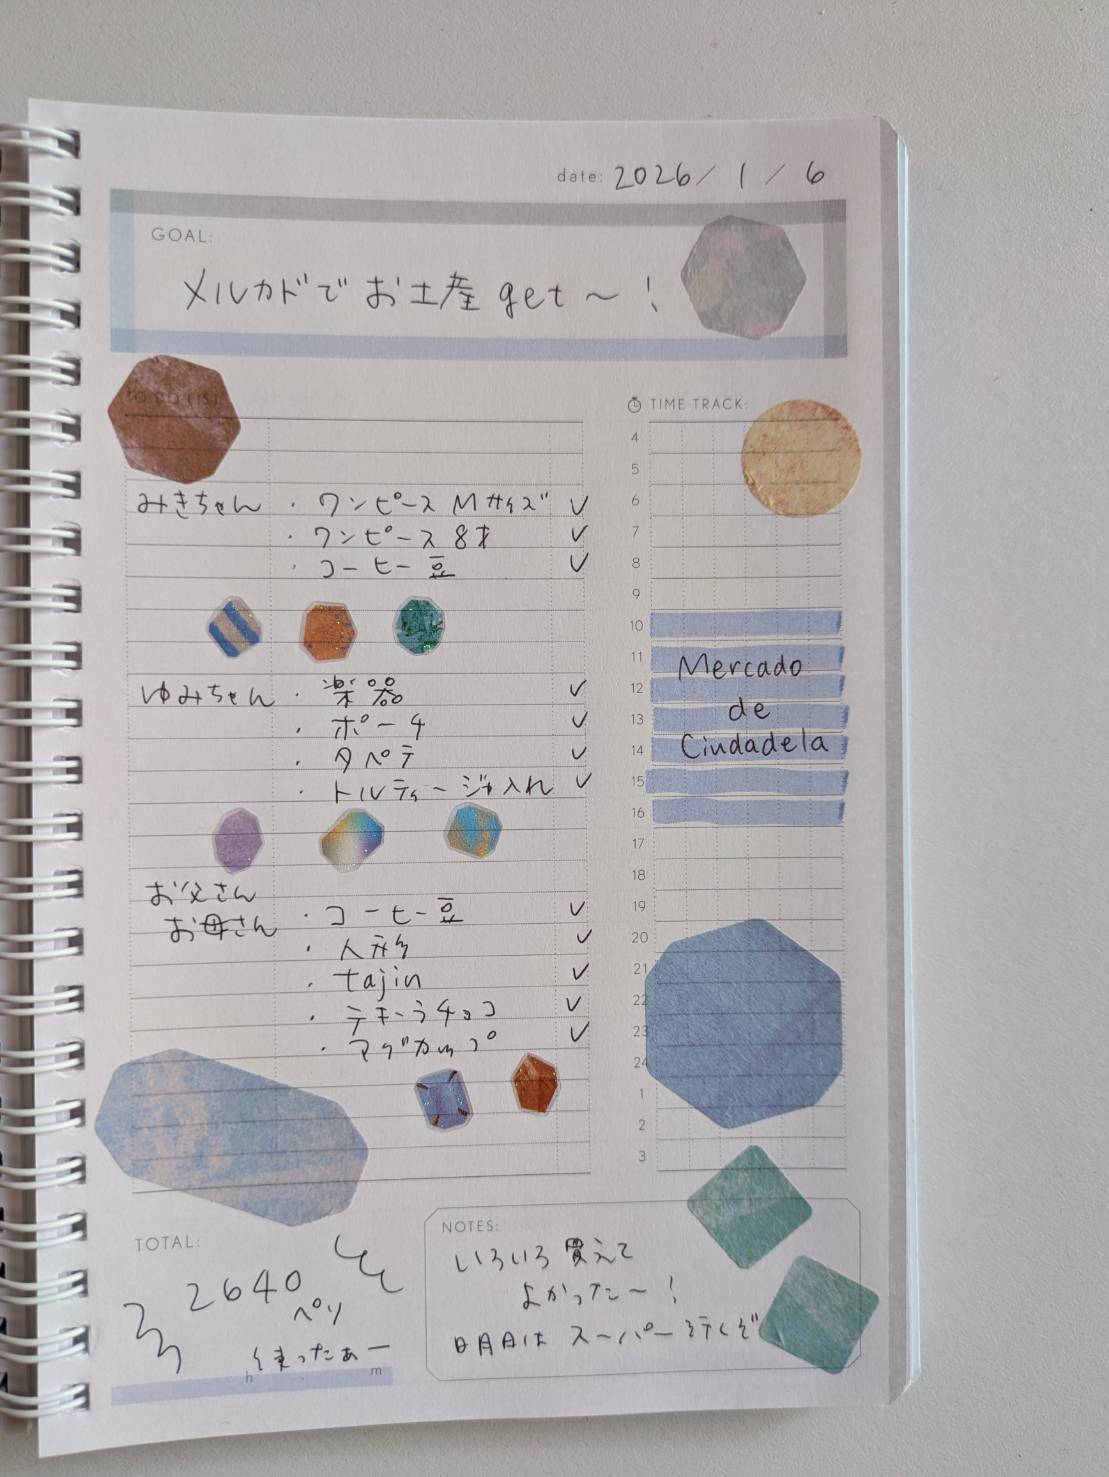 date: 2026/1/6
GOAL:
メルカドでお土産get〜!
TO DO LIST:
みきちゃん ・ワンピース Mサイズ ✓
・ワンピース 8才 ✓
・コーヒー豆 ✓
ゆみちゃん ・楽器 ✓
・ポーチ ✓
・タペテ ✓
・トルティージャ入れ ✓
お父さん
お母さん ・コーヒー豆 ✓
・人形 ✓
・tajin ✓
・テキーラチョコ ✓
・マグカップ ✓
TIME TRACK:
4
5
6
7
8
9
10
11
12
13
14
15
16
17
18
19
20
21
22
23
24
1
2
3
Mercado
de
Ciudadela
TOTAL:
2640
ペソ
使ったぁー
h m
NOTES:
いろいろ買えて
よかった〜!
明日はスーパー行くぞ